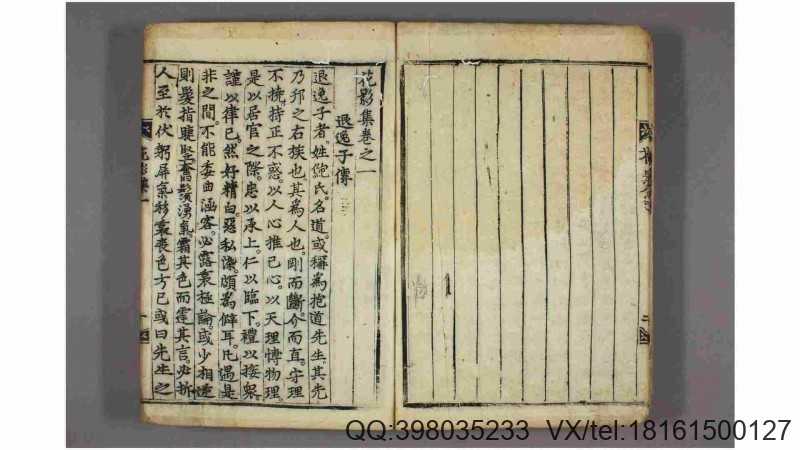 花影集卷之一
退逸子傳
退逸子者。姓鮑氏。名道。或稱爲抱道先生。其先
乃邦之右族也。其爲人也。剛而斷。介而直。守理
不撓。持正不惑。以人心推己心。以天理博物理。
是以居官之際。忠以承上。仁以臨下。禮以接衆。
謹以律己。然好精白惡私濁。頗爲僻耳。凡遇是
非之間。不能委曲涵容。必露衷極論。或少相違
則髮指睫竪奮髯湧氣。霜其色而霆其言。必折
人至於伏躬屏氣移衷喪色方已或曰先生之
QQ:398035233 VX/tel:18161500127